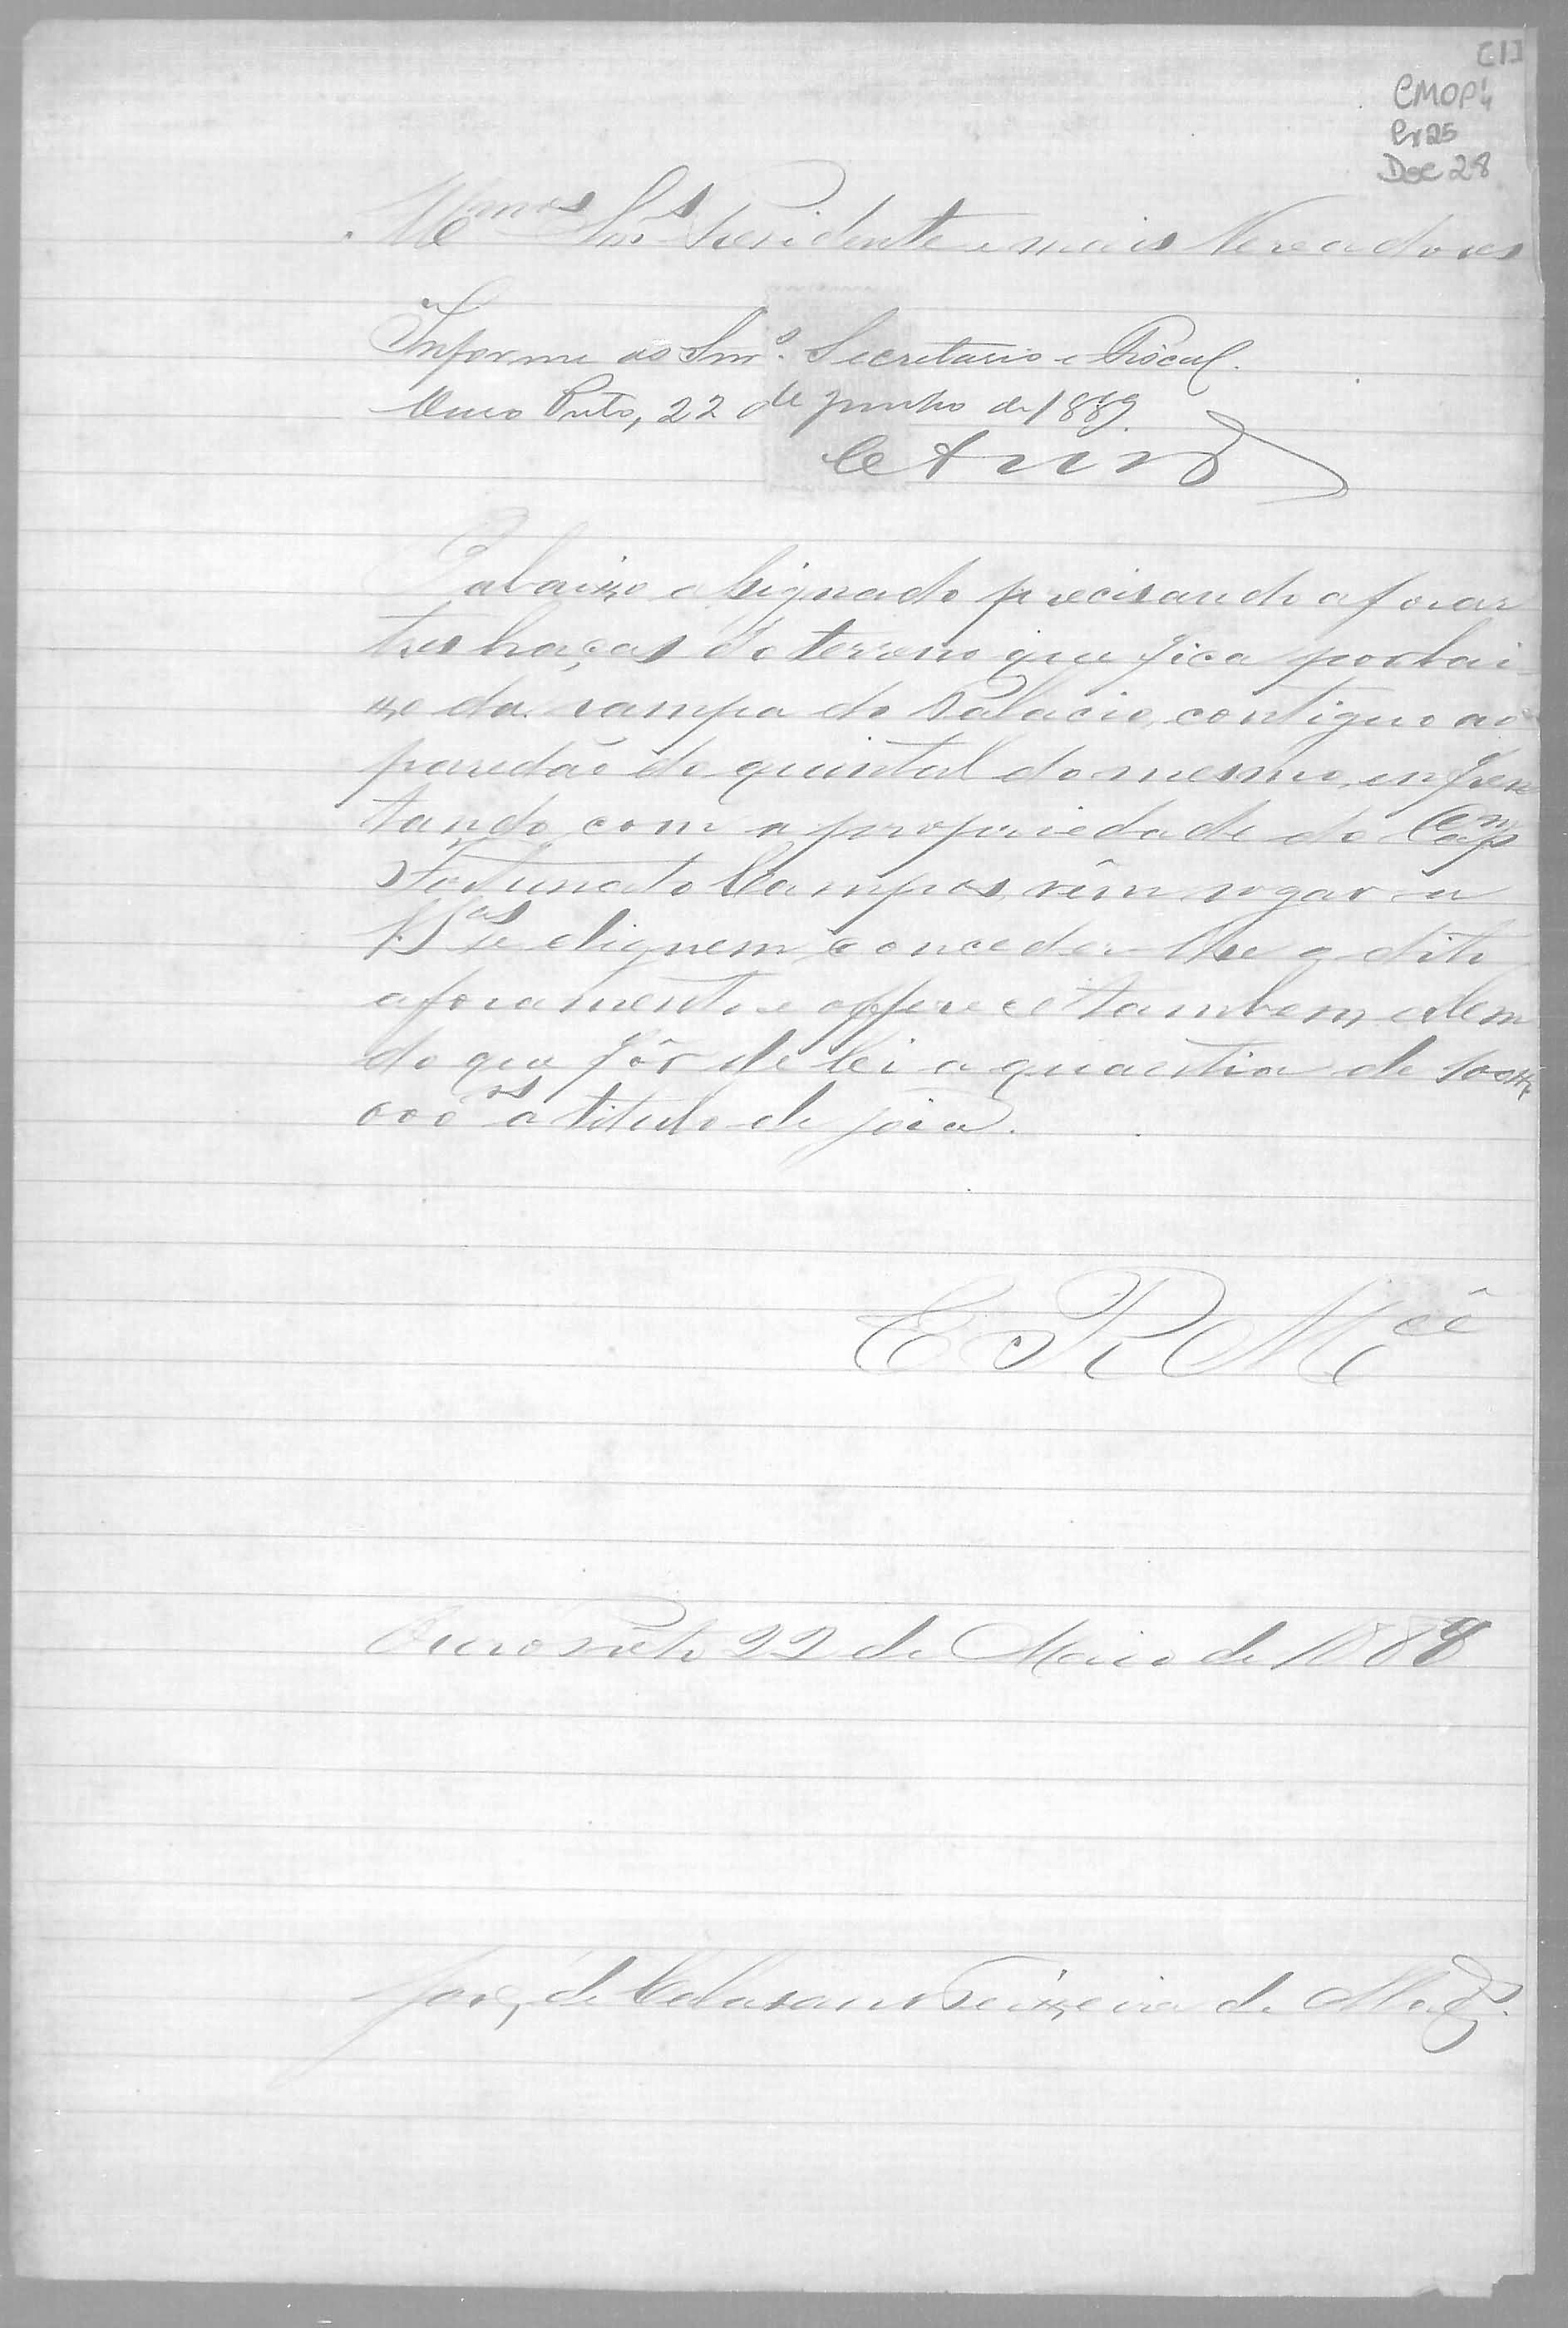 [1]
CMOP
Cx 25
Doc 28
Illmos Snrs Presidente e mais Vereadores
Informe os Snrs. Secretario e Fiscal.
Ouro Preto, 22 de junho de 1889.
O abaixo assignado precisando aforar
tres braças do terreno que fica por bai
xo da rampa do Palacio, contiguo ao
paredão do quintal do mesmo, enfren
tando com a propriedade do Capm
Fortunato Campos, vêm rogar a
V.Sas se dignem conceder-lhe o dito
aforamento e offerece tambem alem
do que fôr de lei a quantia de 10$
000 rs a titulo de joia.
E R Mcê
Ouro Preto 22 de Maio de 1889
José de Calasans Teixeira de